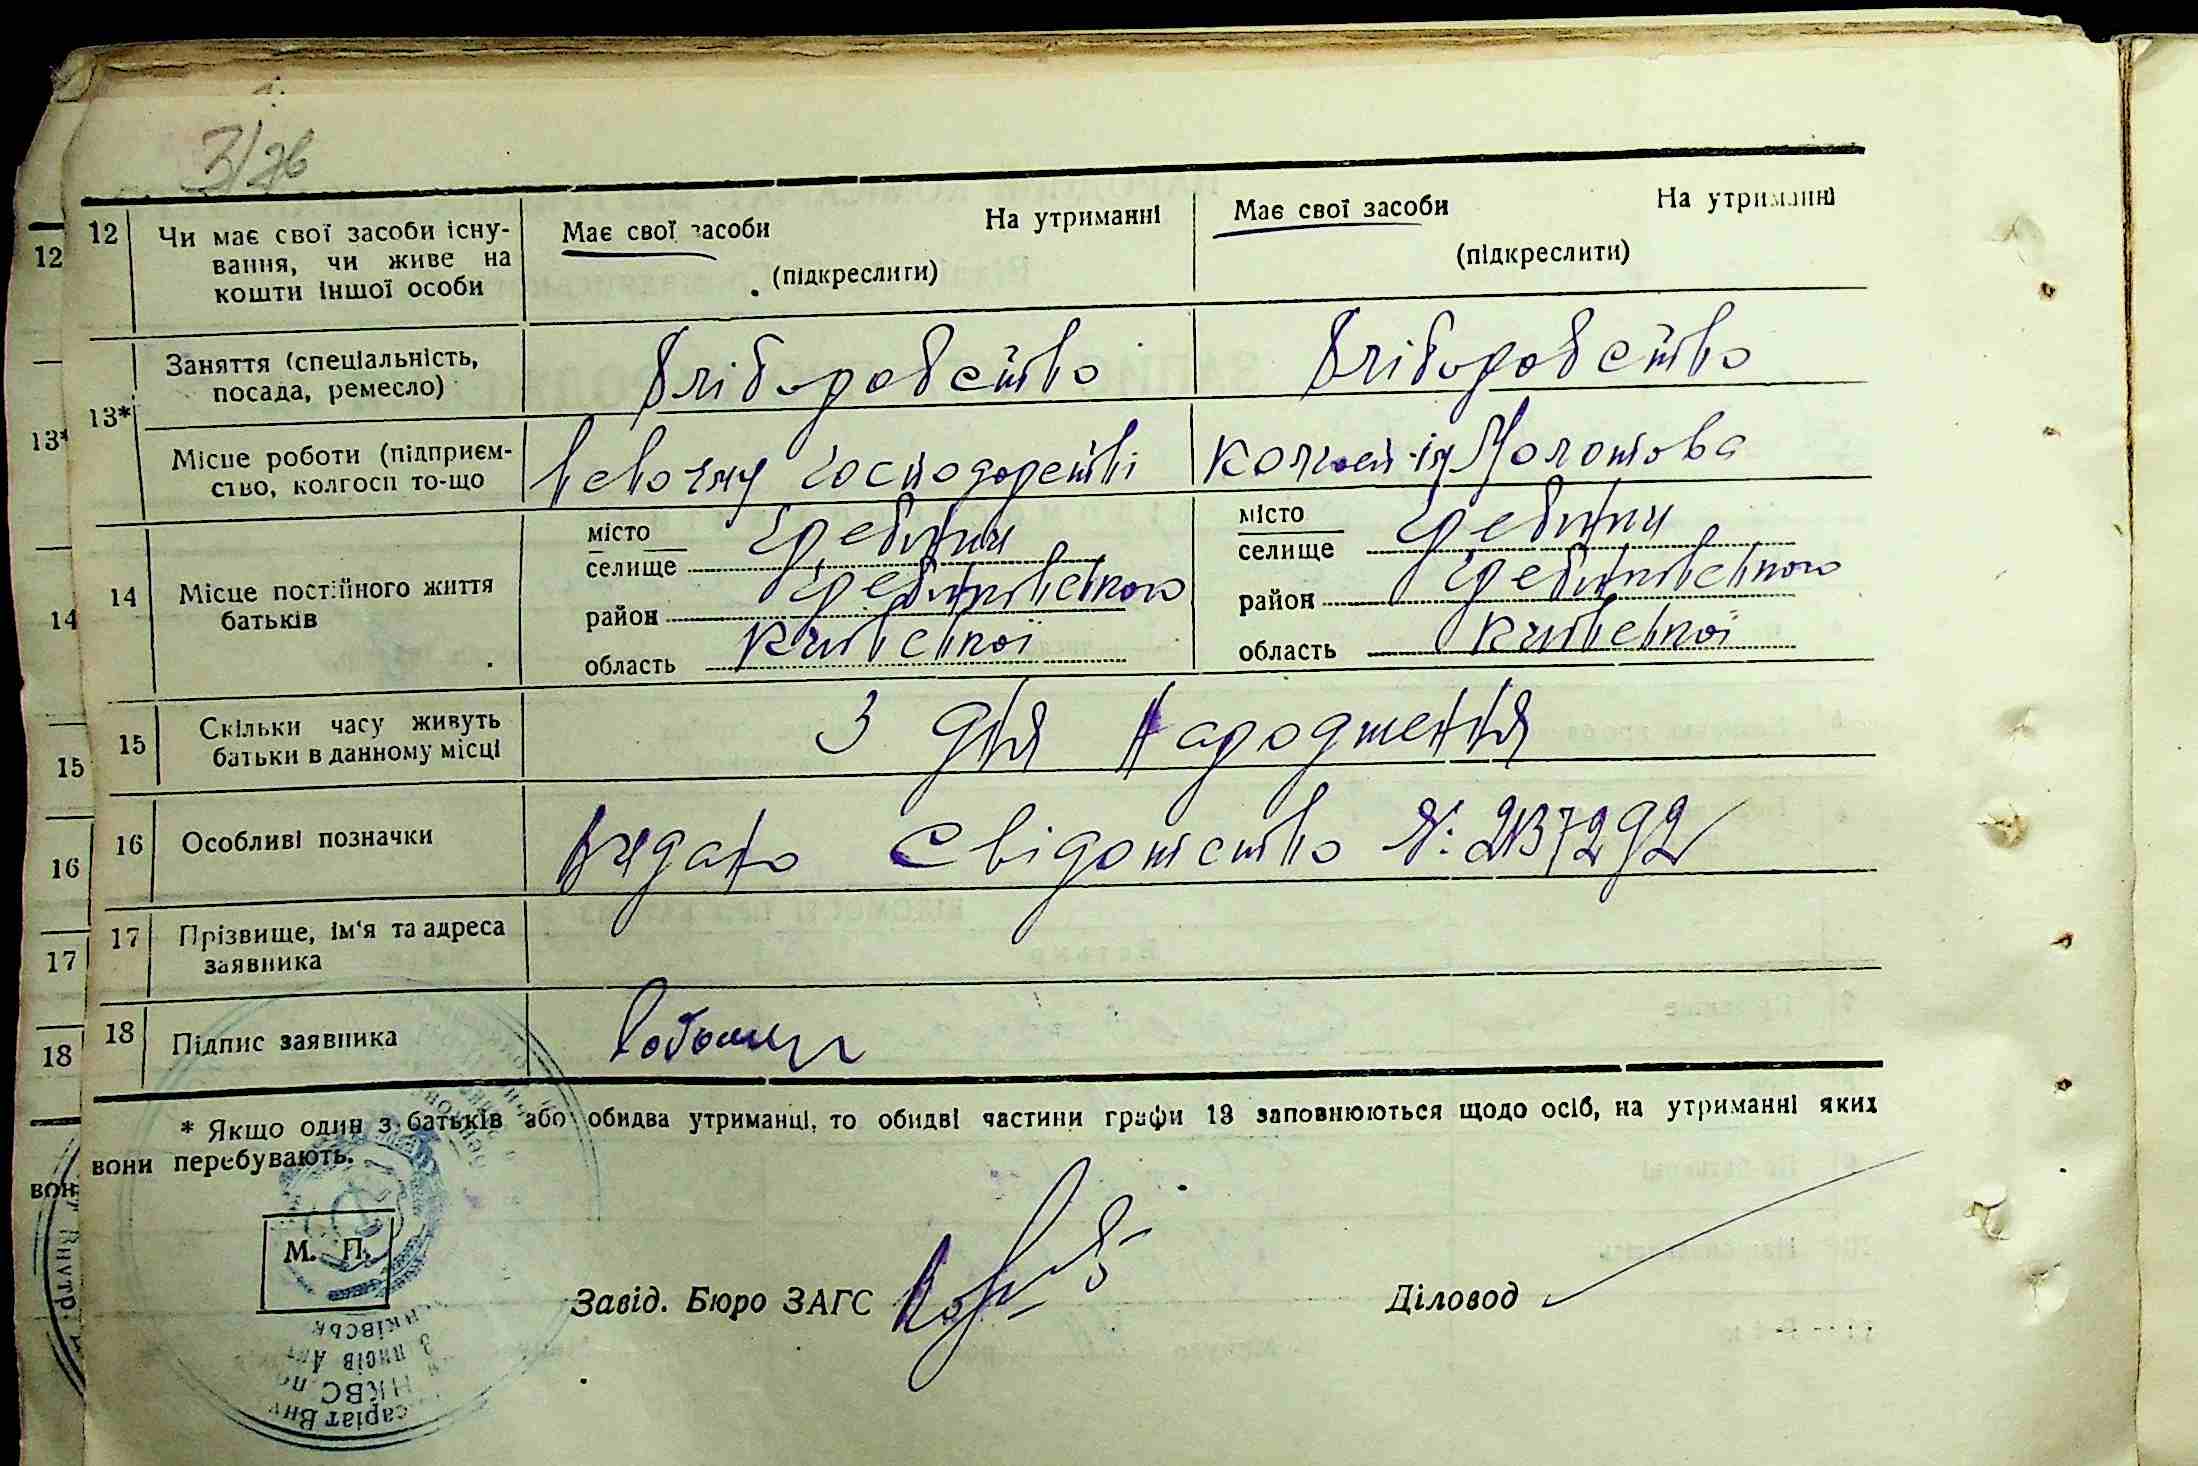 3/зв
12 Чи має свої засоби існу- Має свої засоби На утриманні Має свої засоби На утриманні
вання, чи живе на (підкреслити) (підкреслити)
кошти іншої особи
13* Заняття (спеціальність, Хліборобство Хліборобство
посада, ремесло)
Місце роботи (підприєм- господарстві колгосп ім Молотова
ство, колгосп то-що
14 Місце постійного життя батьків
місто Гребінки місто Гребінки
селище селище
район Гребінківського район Гребінківського
область Київської область Київської
15 Скільки часу живуть З дня народження
батьки в данному місці
16 Особливі позначки Видано Свідотство №: 2137292
17 Прізвище, ім'я та адреса
заявника
18 Підпис заявника
* Якщо один з батьків або обидва утриманці, то обидві частини графи 13 заповнюються щодо осіб, на утриманні яких
вони перебувають.
М. П.
Завід. Бюро ЗАГС
Діловод
12
13*
14
15
16
17
18
вон
Внутр
саріат Вну
НКВС